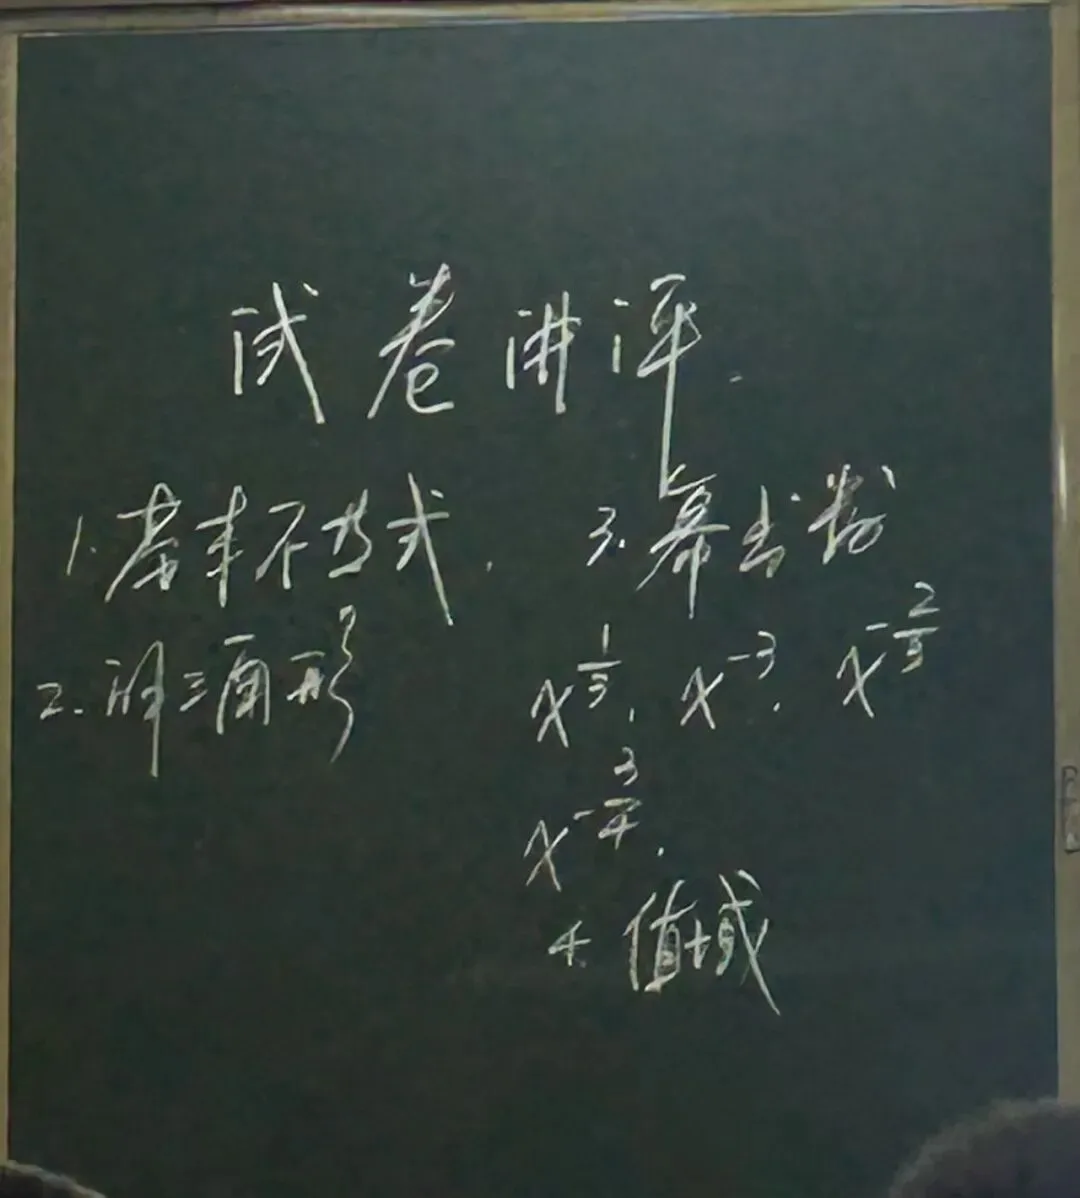 试卷讲评.
1.基本不等式.
2.解三角形
3.幂函数
x^{\frac{1}{3}}, x^{-3}. x^{-\frac{2}{3}}
x^{-\frac{3}{4}}.
4.值域